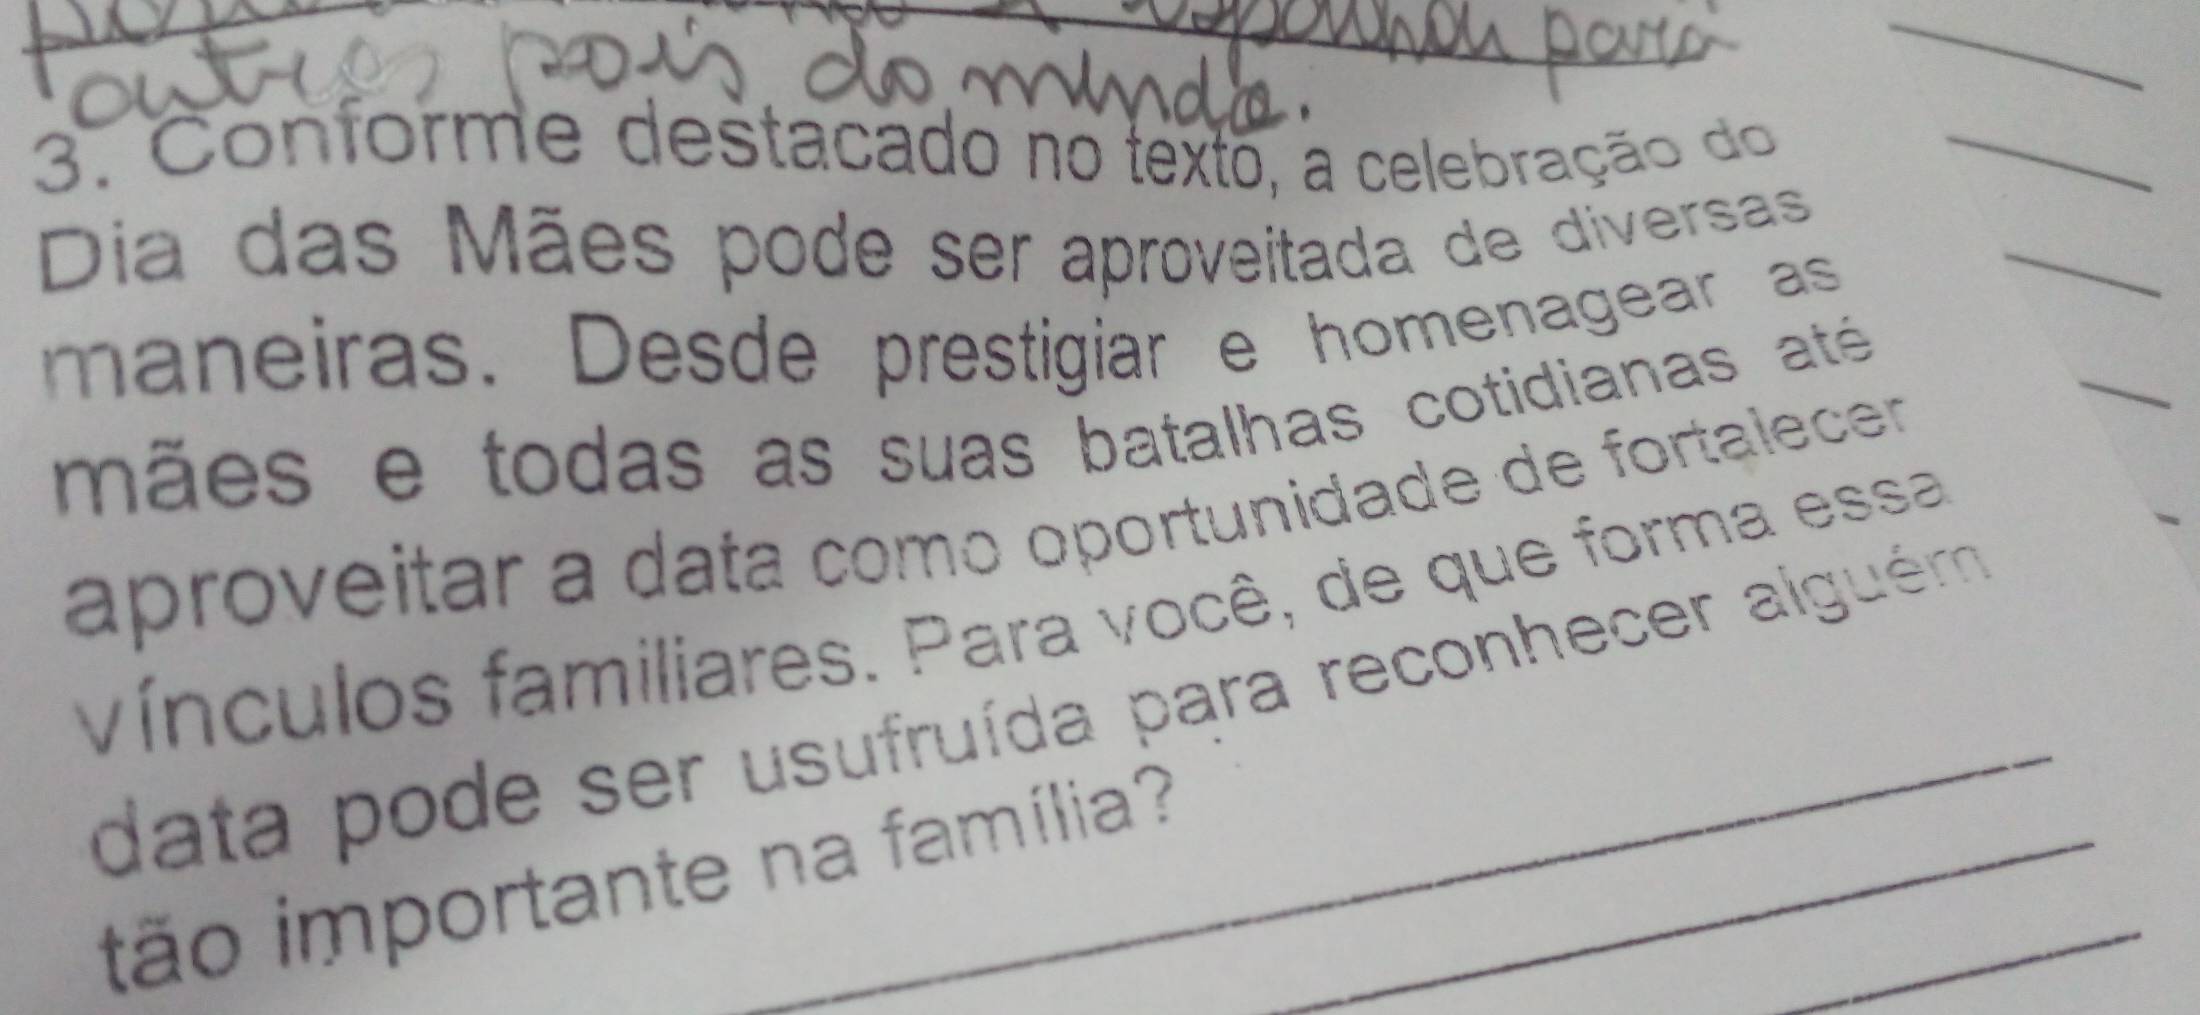 para
outros pois do mundo.
3. Conforme destacado no texto, a celebração do
Dia das Mães pode ser aproveitada de diversas
maneiras. Desde prestigiar e homenagear as
mães e todas as suas batalhas cotidianas até
aproveitar a data como oportunidade de fortalecer
vínculos familiares. Para você, de que forma essa
data pode ser usufruída para reconhecer alguém
tão importante na família?